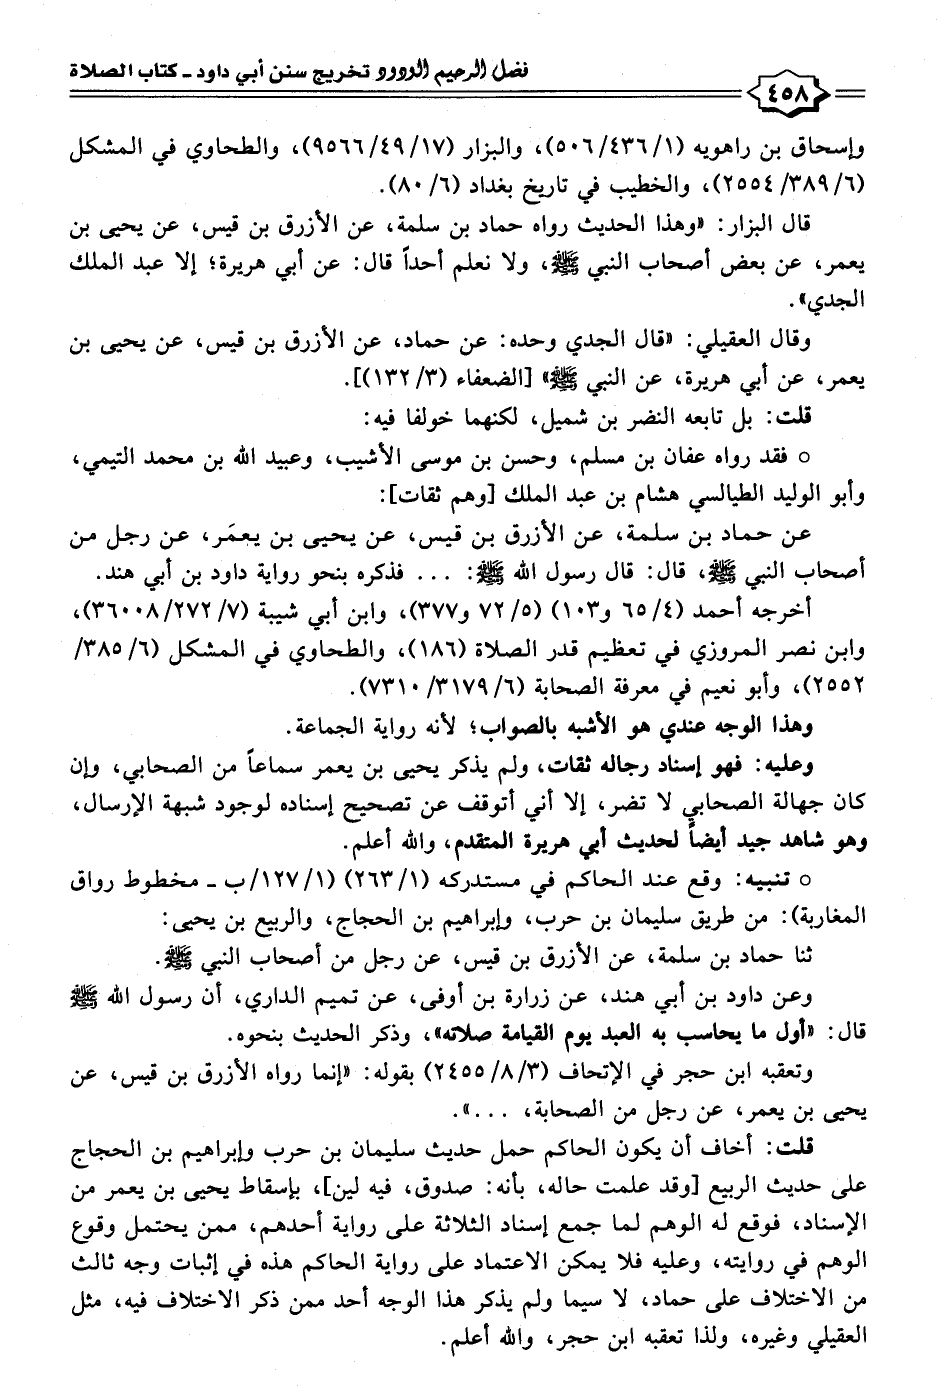 فضل الرحيم الودود تخريج سنن أبي داود - كتاب الصلاة
٤٥٨
وإسحاق بن راهويه (١/ ٤٣٦/ ٥٠٦)، والبزار (١٧/ ٤٩/ ٩٥٦٦)، والطحاوي في المشكل
(٦/ ٣٨٩/ ٢٥٥٤)، والخطيب في تاريخ بغداد (٦/ ٨٠).
قال البزار: «وهذا الحديث رواه حماد بن سلمة، عن الأزرق بن قيس، عن يحيى بن
يعمر، عن بعض أصحاب النبي ﷺ، ولا نعلم أحداً قال: عن أبي هريرة؛ إلا عبد الملك
الجدي».
وقال العقيلي: «قال الجدي وحده: عن حماد، عن الأزرق بن قيس، عن يحيى بن
يعمر، عن أبي هريرة، عن النبي ﷺ» [الضعفاء (٣/ ١٣٢)].
قلت: بل تابعه النضر بن شميل، لكنهما خولفا فيه:
○ فقد رواه عفان بن مسلم، وحسن بن موسى الأشيب، وعبيد الله بن محمد التيمي،
وأبو الوليد الطيالسي هشام بن عبد الملك [وهم ثقات]:
عن حماد بن سلمة، عن الأزرق بن قيس، عن يحيى بن يعمَر، عن رجل من
أصحاب النبي ﷺ، قال: قال رسول الله ﷺ: ... فذكره بنحو رواية داود بن أبي هند.
أخرجه أحمد (٤/ ٦٥ و١٠٣) (٥/ ٧٢ و٣٧٧)، وابن أبي شيبة (٧/ ٢٧٢/ ٣٦٠٠٨)،
وابن نصر المروزي في تعظيم قدر الصلاة (١٨٦)، والطحاوي في المشكل (٦/ ٣٨٥/
٢٥٥٢)، وأبو نعيم في معرفة الصحابة (٦/ ٣١٧٩/ ٧٣١٠).
وهذا الوجه عندي هو الأشبه بالصواب؛ لأنه رواية الجماعة.
وعليه: فهو إسناد رجاله ثقات، ولم يذكر يحيى بن يعمر سماعاً من الصحابي، وإن
كان جهالة الصحابي لا تضر، إلا أني أتوقف عن تصحيح إسناده لوجود شبهة الإرسال،
وهو شاهد جيد أيضاً لحديث أبي هريرة المتقدم، والله أعلم.
○ تنبيه: وقع عند الحاكم في مستدركه (١/ ٢٦٣) (١/ ١٢٧/ ب - مخطوط رواق
المغاربة): من طريق سليمان بن حرب، وإبراهيم بن الحجاج، والربيع بن يحيى:
ثنا حماد بن سلمة، عن الأزرق بن قيس، عن رجل من أصحاب النبي ﷺ.
وعن داود بن أبي هند، عن زرارة بن أوفى، عن تميم الداري، أن رسول الله ﷺ
قال: «أول ما يحاسب به العبد يوم القيامة صلاته»، وذكر الحديث بنحوه.
وتعقبه ابن حجر في الإتحاف (٣/ ٨/ ٢٤٥٥) بقوله: «إنما رواه الأزرق بن قيس، عن
يحيى بن يعمر، عن رجل من الصحابة، ...».
قلت: أخاف أن يكون الحاكم حمل حديث سليمان بن حرب وإبراهيم بن الحجاج
على حديث الربيع [وقد علمت حاله، بأنه: صدوق، فيه لين]، بإسقاط يحيى بن يعمر من
الإسناد، فوقع له الوهم لما جمع إسناد الثلاثة على رواية أحدهم، ممن يحتمل وقوع
الوهم في روايته، وعليه فلا يمكن الاعتماد على رواية الحاكم هذه في إثبات وجه ثالث
من الاختلاف على حماد، لا سيما ولم يذكر هذا الوجه أحد ممن ذكر الاختلاف فيه، مثل
العقيلي وغيره، ولذا تعقبه ابن حجر، والله أعلم.